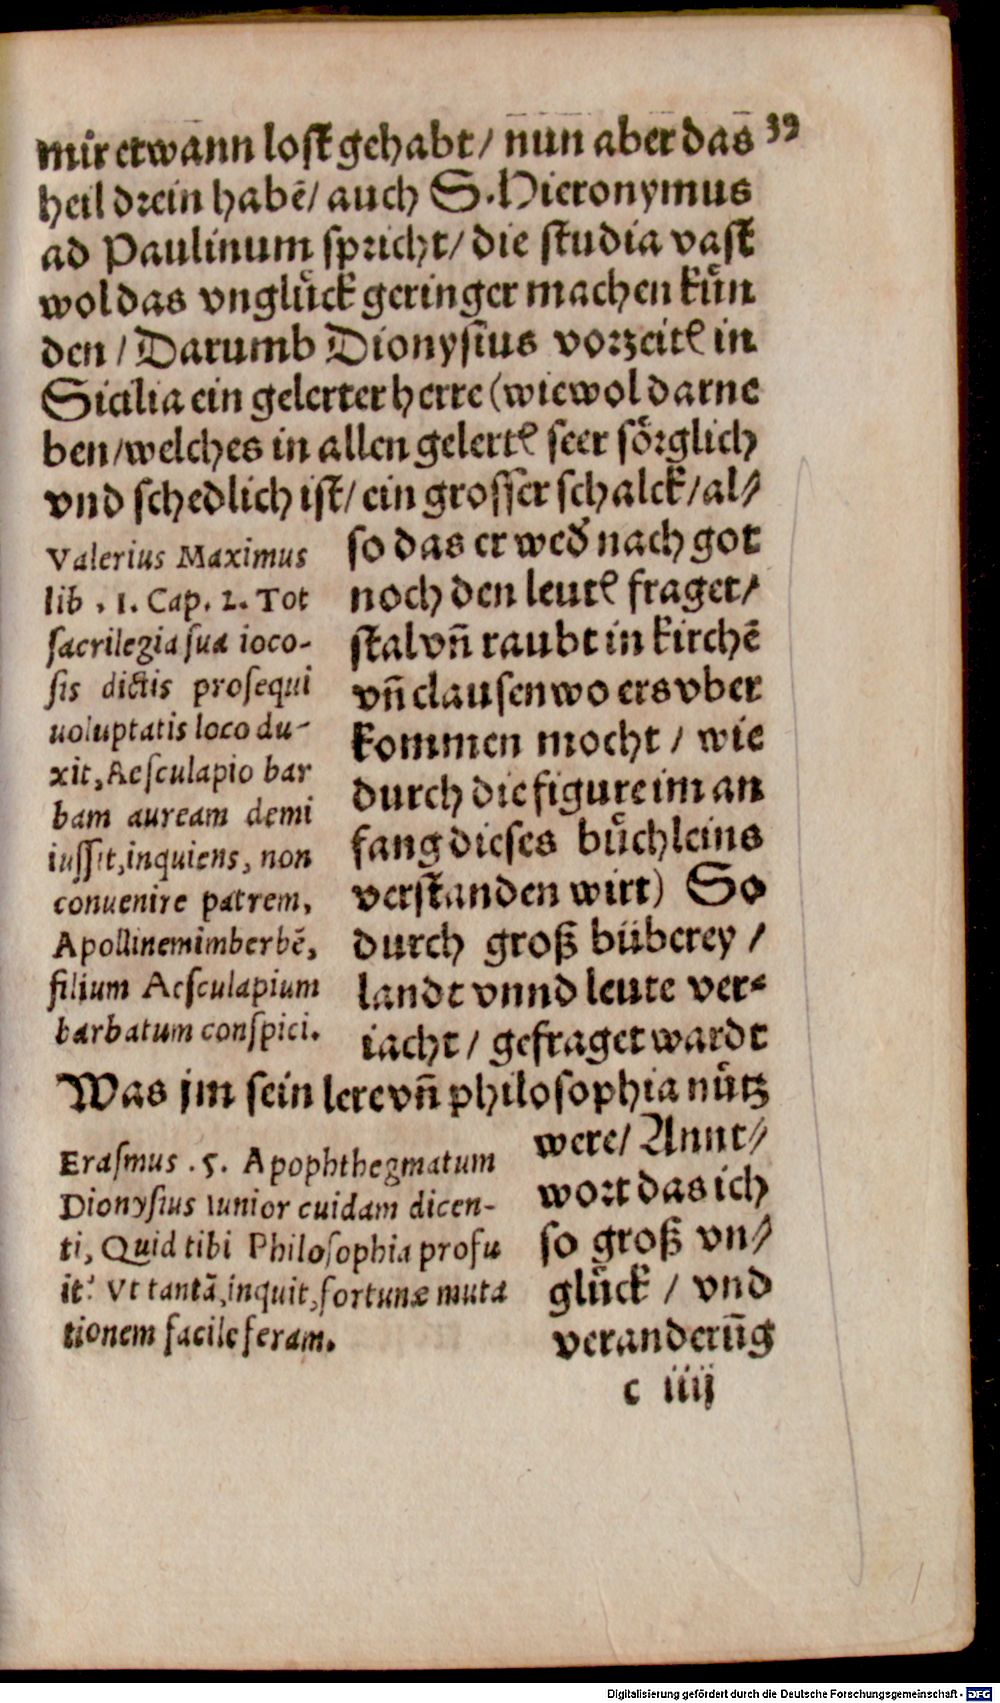 mir etwann lost gehabt/ nun aber das 39
heil drein habē/ auch S. Hieronymus
ad Paulinum spricht/ die studia vast
wol das vnglu̓ck geringer machen ku̓n
den / Darumb Dionysius vorzeitꝭ in
Sicilia ein gelerter herre (wiewol darne
ben/welches in allen gelertꝭ seer sörglich
vnd schedlich ist/ ein grosser schalck/ al⸗
so das er wed̓ nach got
noch den leutꝭ fraget/
stal vn̄ raubt in kirchē
vn̄ clausen wo ers vber
kommen mocht / wie
durch die figure im an
fang dieses bu̓chleins
verstanden wirt) So
durch groß büberey /
landt vnnd leute ver⸗
iacht / gefraget wardt
Valerius Maximus
lib . 1. Cap. 2. Tot
sacrilegia sua ioco-
sis dictis prosequi
uoluptatis loco du-
xit, Aesculapio bar
bam auream demi
iussit, inquiens, non
conuenire patrem,
Apollinem imberbē,
filium Aesculapium
barbatum conspici.
Was jm sein lere vn̄ philosophia nu̓tz
were/ Annt⸗
wort das ich
so groß vn⸗
glu̓ck / vnd
veranderūg
Erasmus .5. Apophthegmatum
Dionysius Iunior cuidam dicen-
ti, Quid tibi Philosophia profu
it? Vt tantā, inquit, fortunæ muta
tionem facile feram.
c iiij
Digitalisierung gefördert durch die Deutsche Forschungsgemeinschaft - DFG